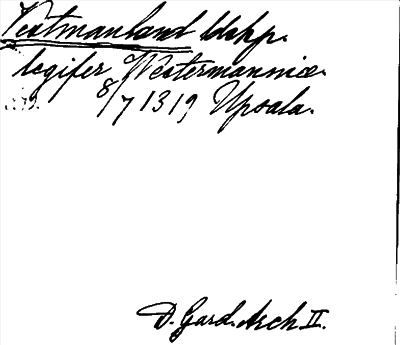 Vestmanland ldskp.
legifer Westermanniæ.
8/7 1319 Upsala.
D. Gard. Arch II.